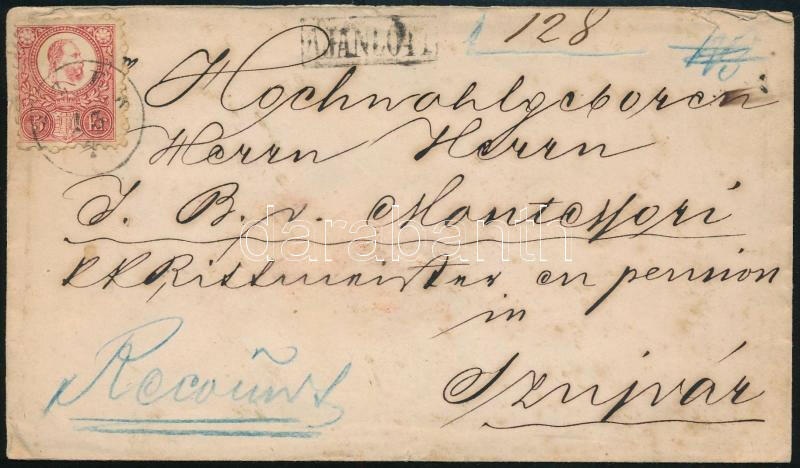 AJÁNLOTT.
128
Hochwohlgeboren
Herrn Herrn
J. B. v. Montessori
KK Rittmeister en pension
in
Szujvár
Recoῡ
darabanth